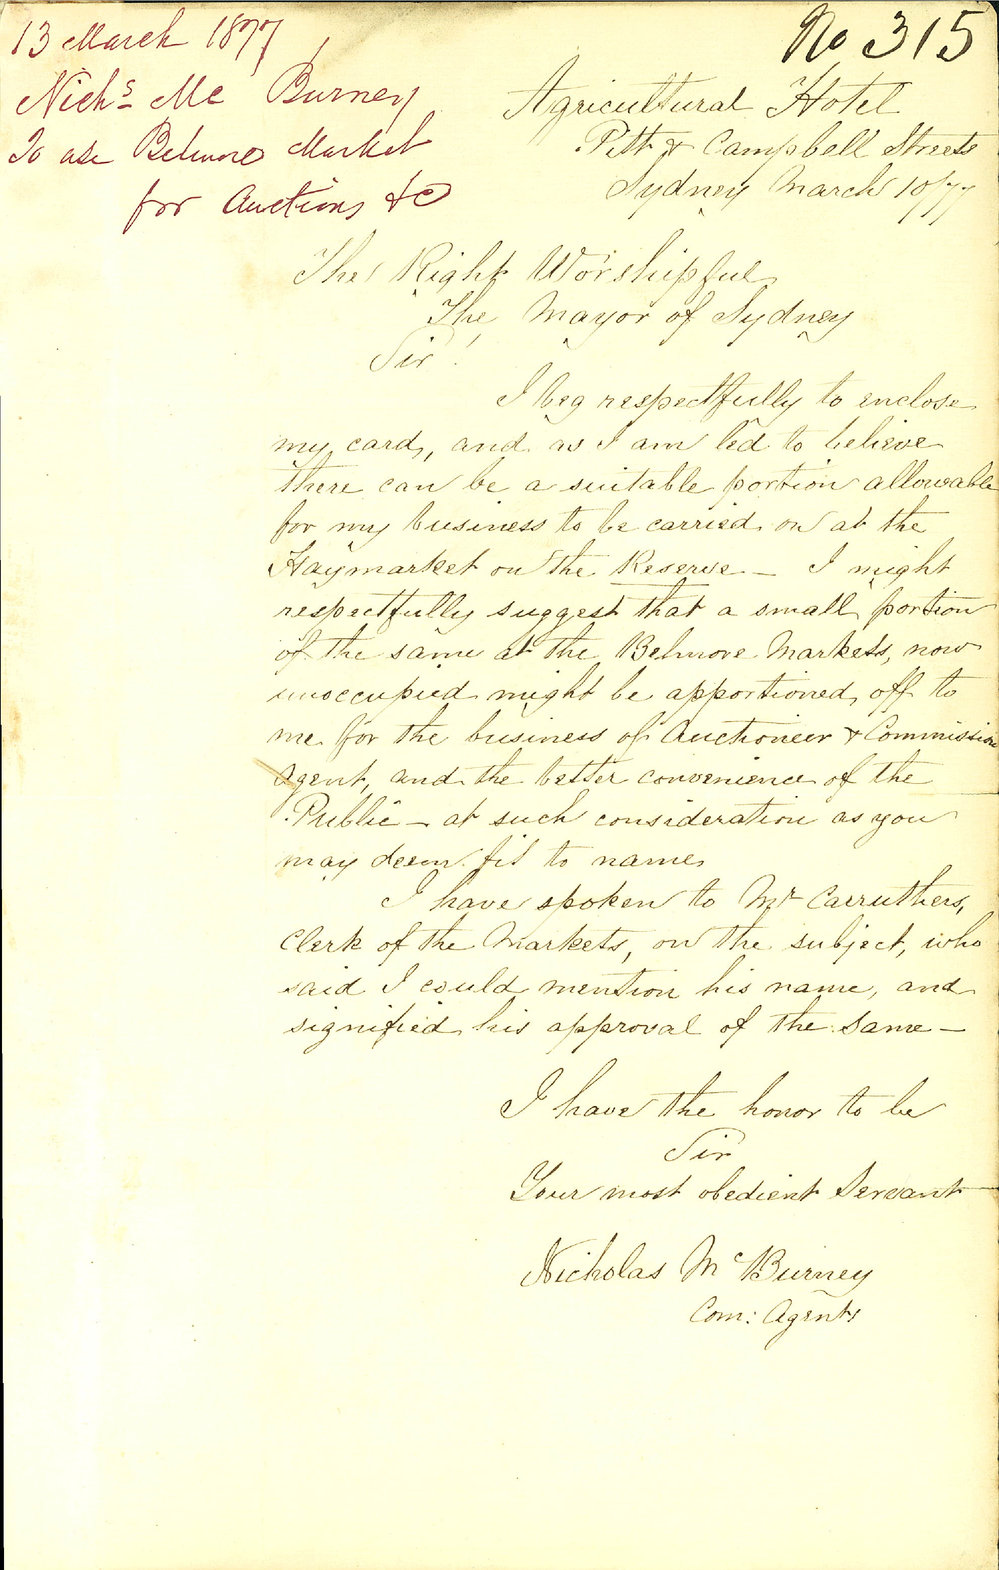 13 March 1877
Nichs Mc Burney
To use Belmore Market
for Auctions &c
No 315
Agricultural Hotel
Pitt & Campbell Streets
Sydney March 10/77
The Right Worshipful
The Mayor of Sydney
Sir!
I beg respectfully to enclose
my card, and as I am led to believe
there can be a suitable portion allowable
for my business to be carried on at the
Haymarket on the Reserve — I might
respectfully suggest that a small portion
of the same at the Belmore Markets, now
unoccupied might be apportioned off to
me for the business of Auctioneer & Commission
Agent, and the better convenience of the
Public — at such consideration as you
may deem fit to name.
I have spoken to Mr Carruthers,
Clerk of the Markets, on the subject, who
said I could mention his name, and
signified his approval of the same —
I have the honor to be
Sir
Your most obedient Servant
Nicholas McBurney
Com: Agent